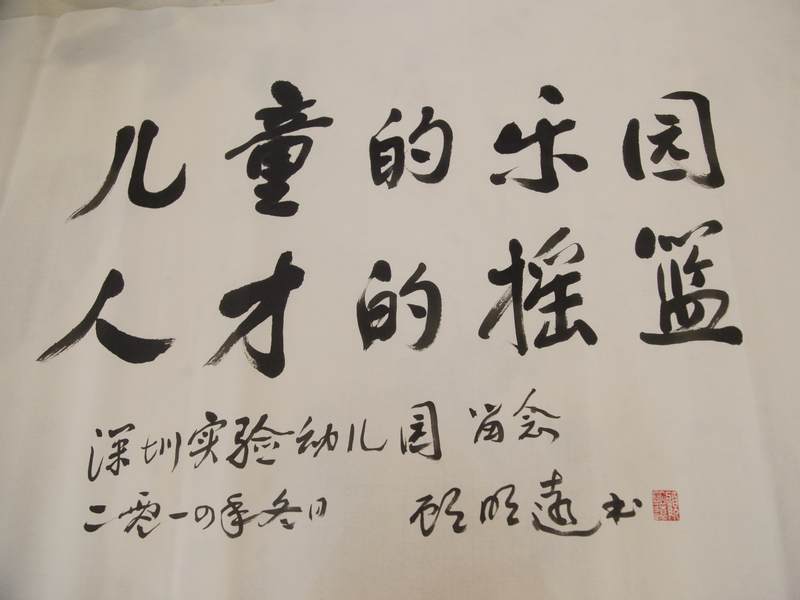 儿童的乐园
人才的摇篮
深圳实验幼儿园 留念
二零一四年冬日 顾明远书